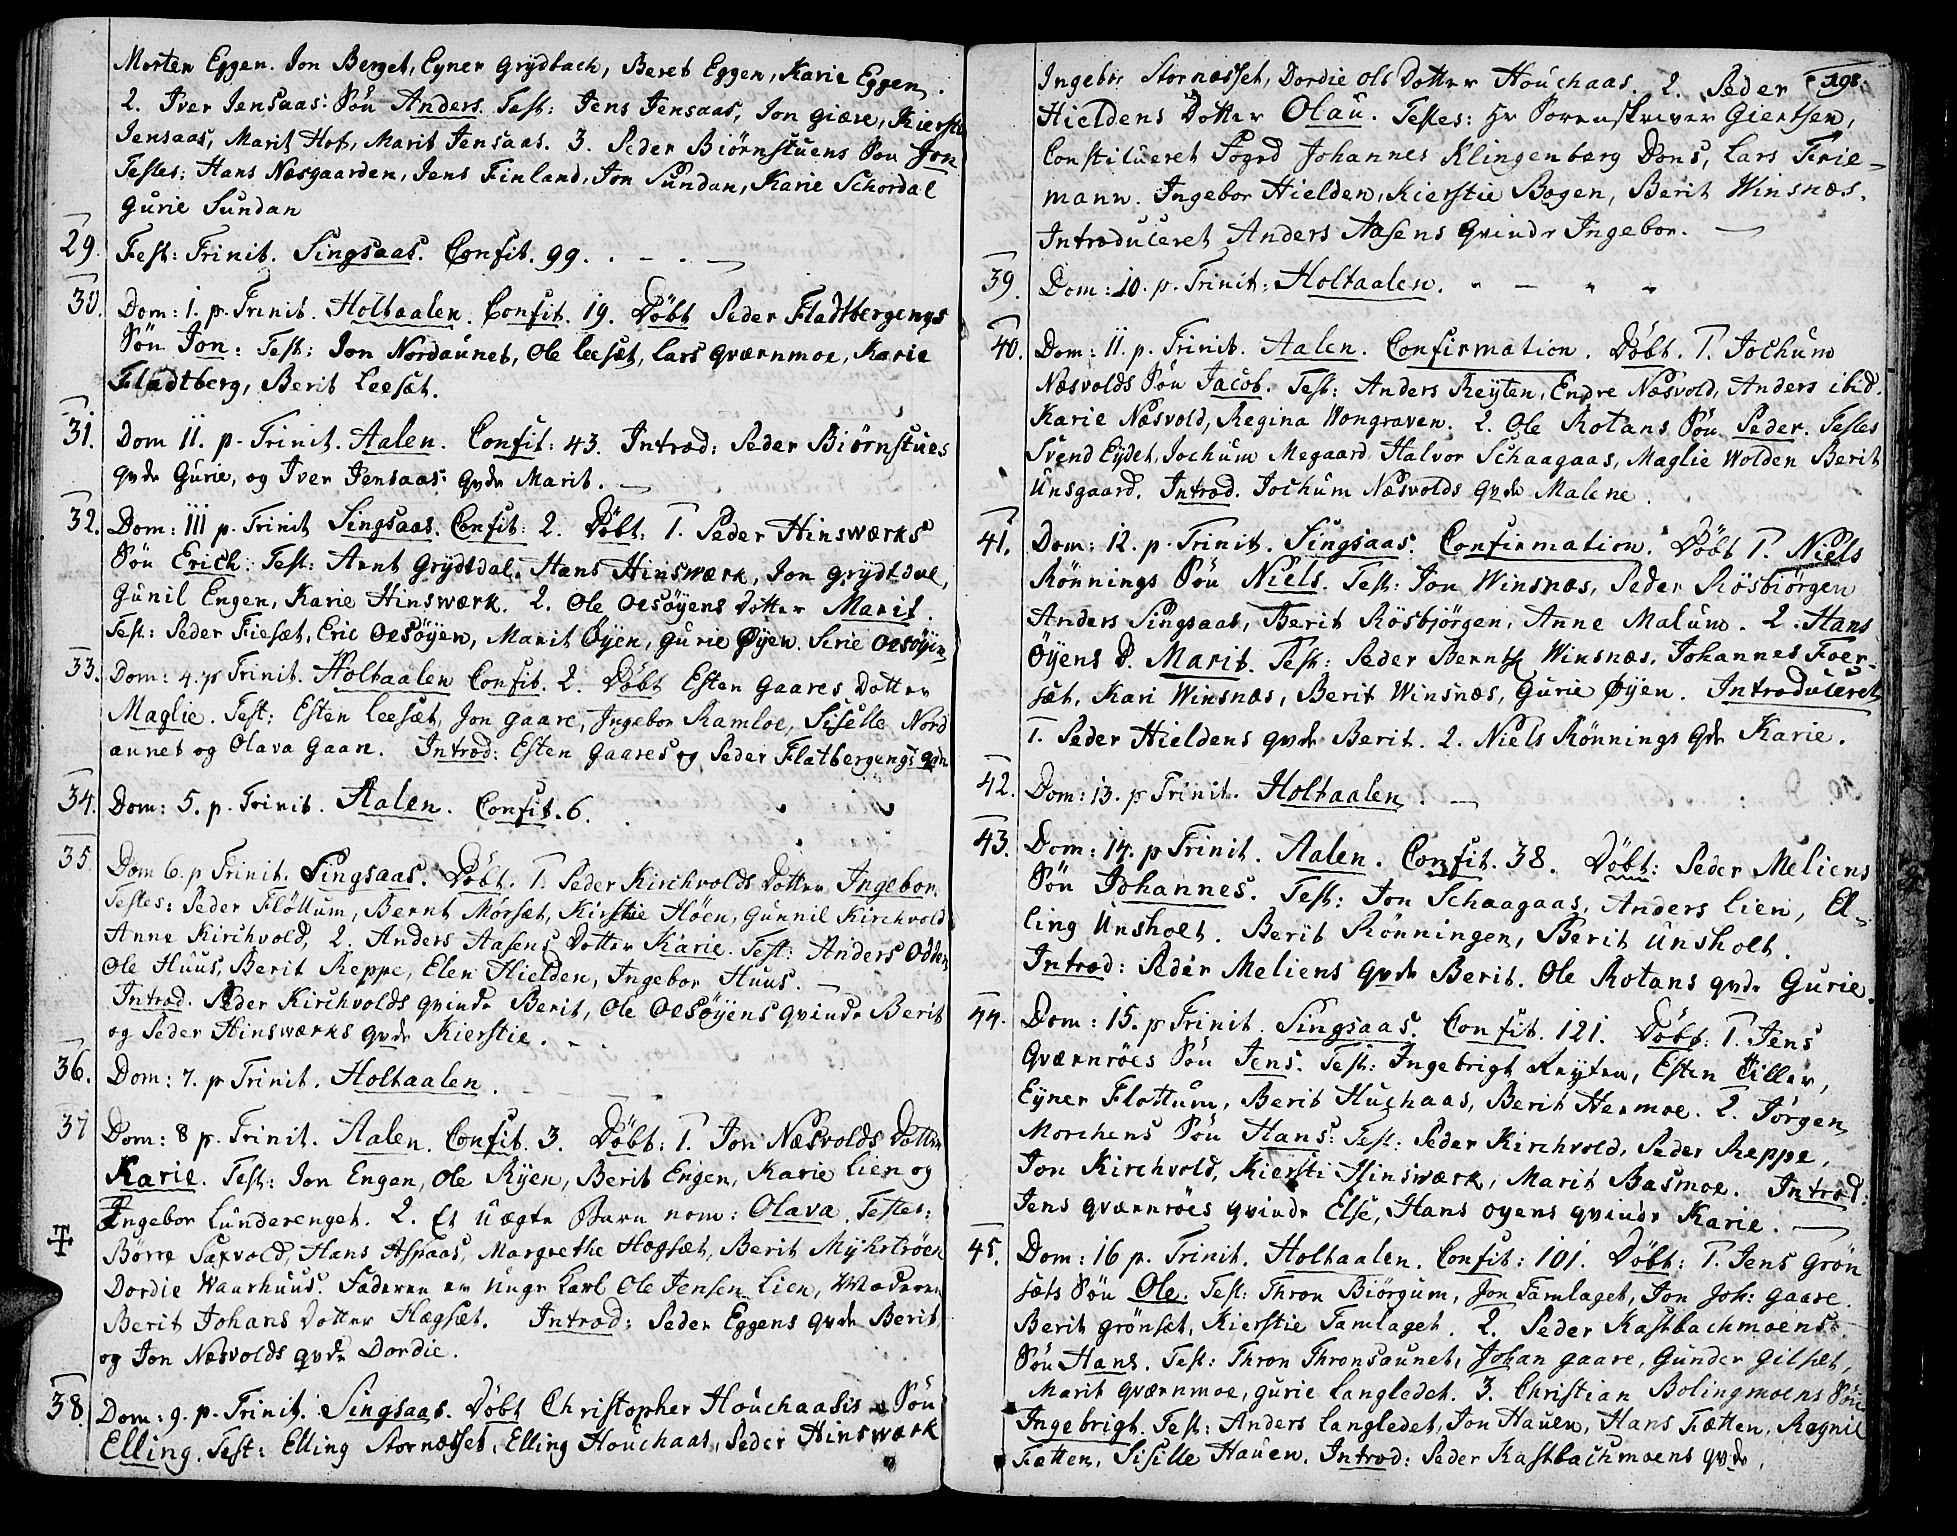 Morten Eggen. Jon Berget, Eyner Grydbach, Beret Eggen, Karie Eggen.
2. Iver Jensaas: Søn Anders. Test: Jens Jensaas, Jon Giære, Kiersti
Jensaas, Marit Hof, Marit Jensaas. 3. Peder Biørnstuens Søn Jon
Testes: Hans Næsgaarden, Jens Finland, Jon Sundan, Karie Schordal
Gurie Sundan
29. Fest: Trinit. Singsaas. Confit. 99.
30. Dom: 1. p. Trinit. Holtaalen. Confit. 19. Döbt Peder Fladtbergengs
Søn Jon: Test: Jon Nordaunet, Ole Leesæt, Lars Qværnmoe, Karie
Fladtberg, Berit Leeset.
31. Dom 11. p. Trinit. Aalen. Confit: 43. Introd: Peder Biørnstues
qvde Gurie, og Iver Jensaas: qvde Marit.
32. Dom: III p. Trinit Singsaas. Confit: 2. Döbt: 1. Peder Hinswærks
Søn Erich. Test: Arnt Grydtdal, Hans Hinswærk, Jon Grydtdal,
Gunil Engen, Karie Hinswærk. 2. Ole Oesöyens Dotter Marit.
Test: Peder Fiesæt, Eric Oesöyen, Marit Öyen, Gurie Øyen. Sirie Oesöyen
33. Dom: 4. p Trinit. Holtaalen Confit. 2. Döbt Esten Gaares Dotter
Maglie. Test: Esten Leesæt, Jon Gaare, Ingebor Ramloe, Sisille Nord
aunet og Olava Gaan. Introd: Esten Gaares og Peder Flatbergengs qvdr
34. Dom: 5. p. Trinit. Aalen. Confit. 6.
35 Dom 6. p Trinit. Singsaas. Döbt. 1. Peder Kirchvolds Dotter Ingebor.
Testes: Peder Fløttum, Bernt Mörsæt, Kirstie Höen, Gunnil Kirchvold
Anne Kirchvold, 2. Anders Aasens Dotter Karie. Test: Anders Odden
Ole Huus, Berit Reppe, Elen Hielden, Ingebor Huus.
Introd. Peder Kirchvolds qvinde Berit, Ole Oesöyens qvinde Berit
og Peder Hinswærks qvde Kierstie.
36. Dom: 7. p Trinit. Holtaalen.
37 Dom: 8 p. Trinit. Aalen. Confit. 3. Döbt: 1. Jon Næsvolds Dotter
Karie. Test: Jon Engen, Ole Ryen, Berit Engen, Karie Lien og
Ingebor Lunderenget. 2. Et Uægte Barn nom: Olava. Testes:
Börre Saxvold, Hans Aspaas, Margrethe Hogsæt, Berit Myhrströen
Dordie Waarhuus. Faderen er unge Karl Ole Jensen Lien, Moderen
Berit Johans Dotter Hægsæt. Introd: Peder Eggens qvde Berit,
og Jon Næsvolds qvde Dordie.
38. Dom: 9. p. Trinit. Singsaas. Döbt Christopher Houchaasis Søn
Elling. Test: Elling Stornæsset, Elling Houchaas, Peder Hinswærk
198.
Ingebr: Stornæsset, Dordie Ols Dotter Houchaas. 2. Peder
Hieldens Dotter Olau. Testes: Hr Sorenskriver Giertsen,
Constitueret Fogd Johannes Klingenberg Dons, Lars Trie-
mann. Ingebor Hielden, Kierstie Bogen, Berit Winsnæs.
Introduceret Anders Aasens qvinde Ingebor.
39. Dom: 10. p. Trinit: Holtaalen.
40. Dom: 11. p. Trinit. Aalen. Confirmation. Döbt. 1. Jochum
Næsvolds Søn Jacob. Test: Anders Reyten, Endre Næsvold, Anders ibid.
Karie Næsvold, Regina Wongraven. 2. Ole Rotans Søn Peder. Testes
Svend Eydet, Jochum Megaard, Halvor Schaagaas, Maglie Wolden Berit
Unsgaard. Introd. Jochum Næsvolds qvde Malene.
41. Dom: 12. p. Trinit. Singsaas. Confirmation. Döbt 1. Niels
Rönnings Søn Niels. Test: Jon Winsnæs, Peder Rösbiörgen
Anders Singsaas, Berit Rösbjörgen, Anne Malum. 2. Hans
Öyens D. Marit. Test: Peder Berntsen Winsnæs, Johannes Foer-
sæt, Kari Winsnæs, Berit Winsnæs, Gurie Øyen. Introduceret
1. Peder Hieldens qvde Berit. 2. Niels Rönnings qvde Karie.
42. Dom: 13. p Trinit. Holtaalen.
43. Dom: 14. p Trinit. Aalen. Confit. 38. Döbt: Peder Meliens
Søn Johannes. Test: Jon Schaagaas, Anders Lien, El-
ling Unsholt. Berit Rönningen, Berit Unsholt.
Introd: Peder Meliens qvde Berit. Ole Rotans qvde Gurie.
44. Dom: 15. p Trinit. Singsaas. Confit. 121. Döbt: 1. Jens
Qværnröes Søn Jens. Test: Ingebrigt Reyten, Esten Tiller,
Eyner Flottum, Berit Huchaas, Berit Hermoe. 2. Jörgen
Morchens Søn Hans: Test: Peder Kirchvold, Peder Reppe,
Jon Kirchvold, Kiersti Hinswærk, Marit Basmoe. Introd:
Jens Qværnröes qvinde Else, Hans Oyens qvinde Karie.
45. Dom: 16 p. Trinit. Holtaalen. Confit: 101. Döbt: 1. Jens Grön
sæts Søn Ole. Test: Thron Biörgum, Jon Tamlaget, Jon Joh: Gaare.
Berit Grönsæt, Kierstie Tamlaget. 2. Peder Kastbachmoens
Søn Hans. Test: Thron Thronsaunet, Johan Gaare, Gunder Gilset,
Marit Qværnmoe, Gurie Langledet. 3. Christian Bolingmoens Søn
Ingebrigt. Test: Anders Langledet, Jon Hauen, Hans Tætten, Ragnil
Tætten, Sisille Hauen. Introd: Peder Kastbachmoens qvde,